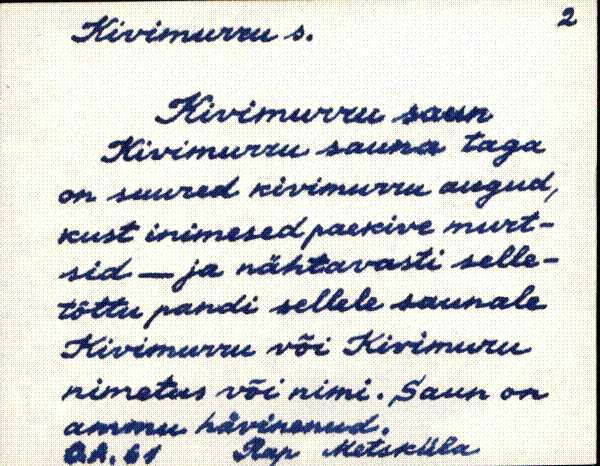 Kivimurru s. 2
Kivimurru saun
Kivimurru sauna taga
on suured kivimurru augud,
kust inimesed paekive murt-
sid — ja nähtavasti selle-
tõttu pandi sellele saunale
Kivimurru või Kivimuru
nimetus või nimi. Saun on
ammu hävinenud.
61 Rap Metsküla